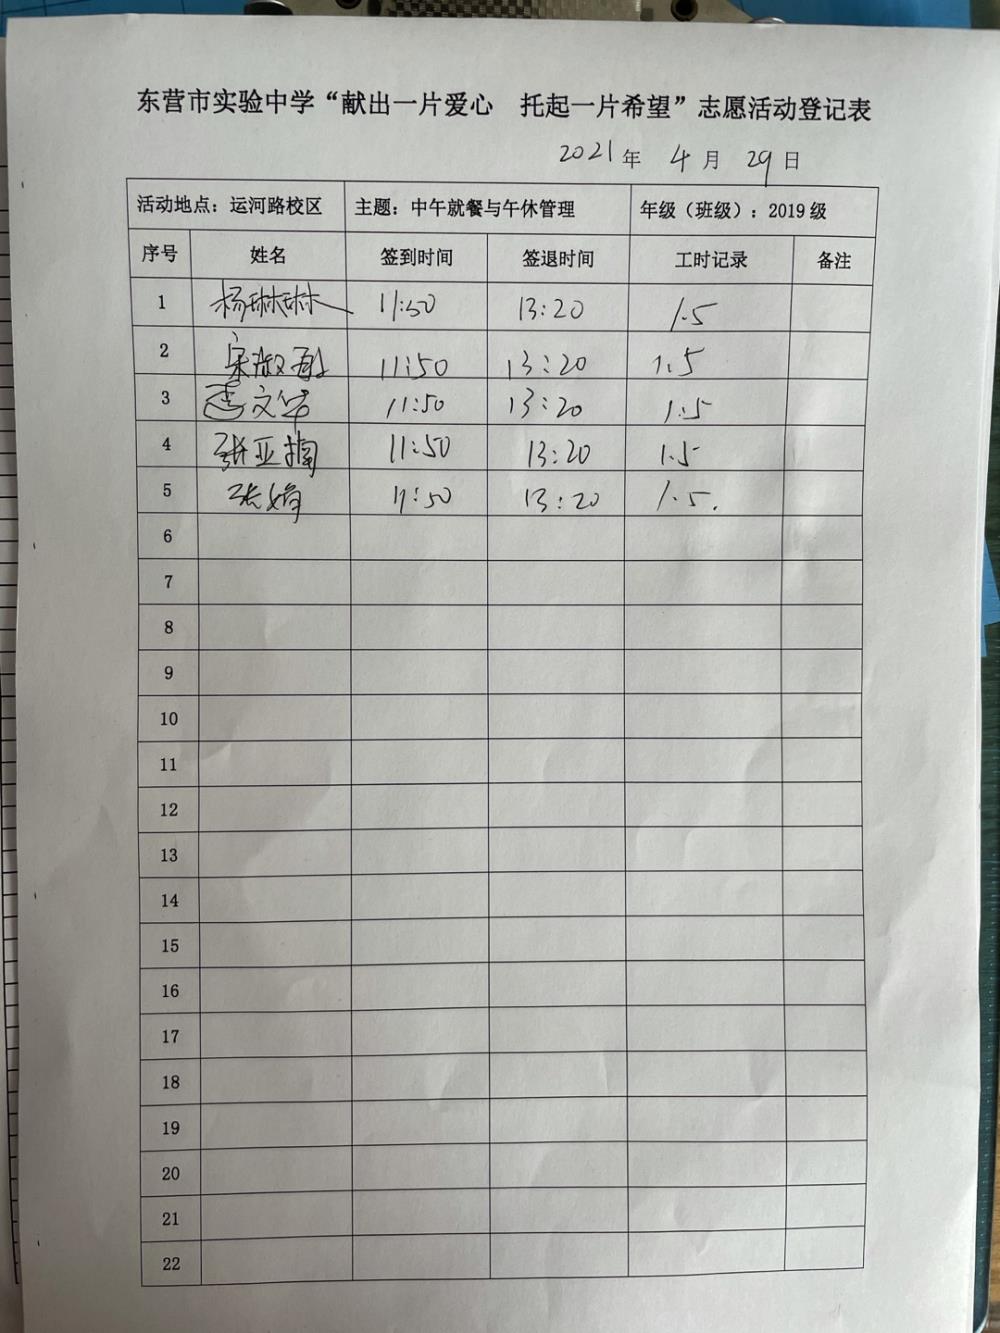 东营市实验中学“献出一片爱心 托起一片希望”志愿活动登记表
2021 年 4 月 29 日
活动地点：运河路校区 主题：中午就餐与午休管理 年级（班级）：2019 级
序号 姓名 签到时间 签退时间 工时记录 备注
1 杨琳琳 11:50 13:20 1.5
2 宋淑 11:50 13:20 1.5
3 李文华 11:50 13:20 1.5
4 张亚楠 11:50 13:20 1.5
5 张娟 11:50 13:20 1.5.
6
7
8
9
10
11
12
13
14
15
16
17
18
19
20
21
22